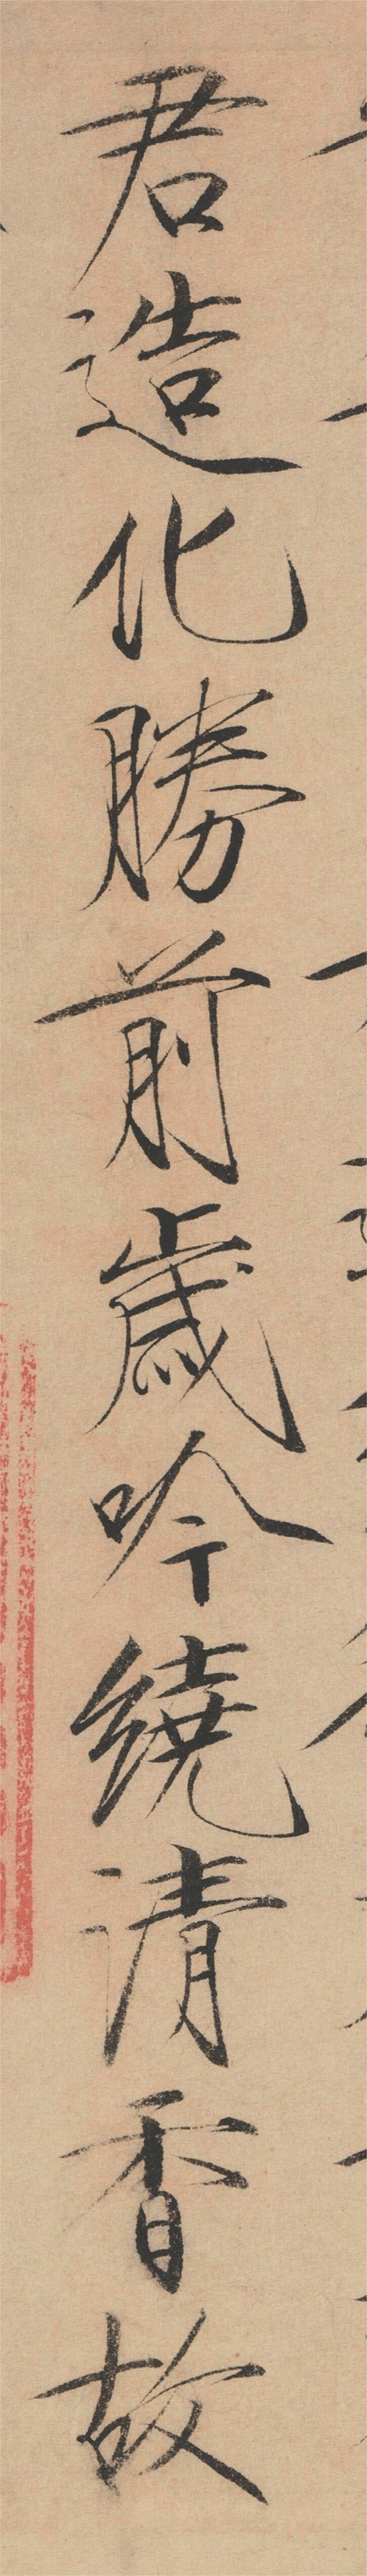 君造化勝前歳吟繞清香故